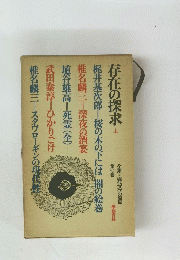 存在の探求 上
梶井基次郎━桜の木の下には 闇の絵巻
椎名麟三━深夜の酒宴
埴谷雄高━死霊(全)
武田泰淳━ひかりごけ
椎名麟三━スタヴローギンの現代性